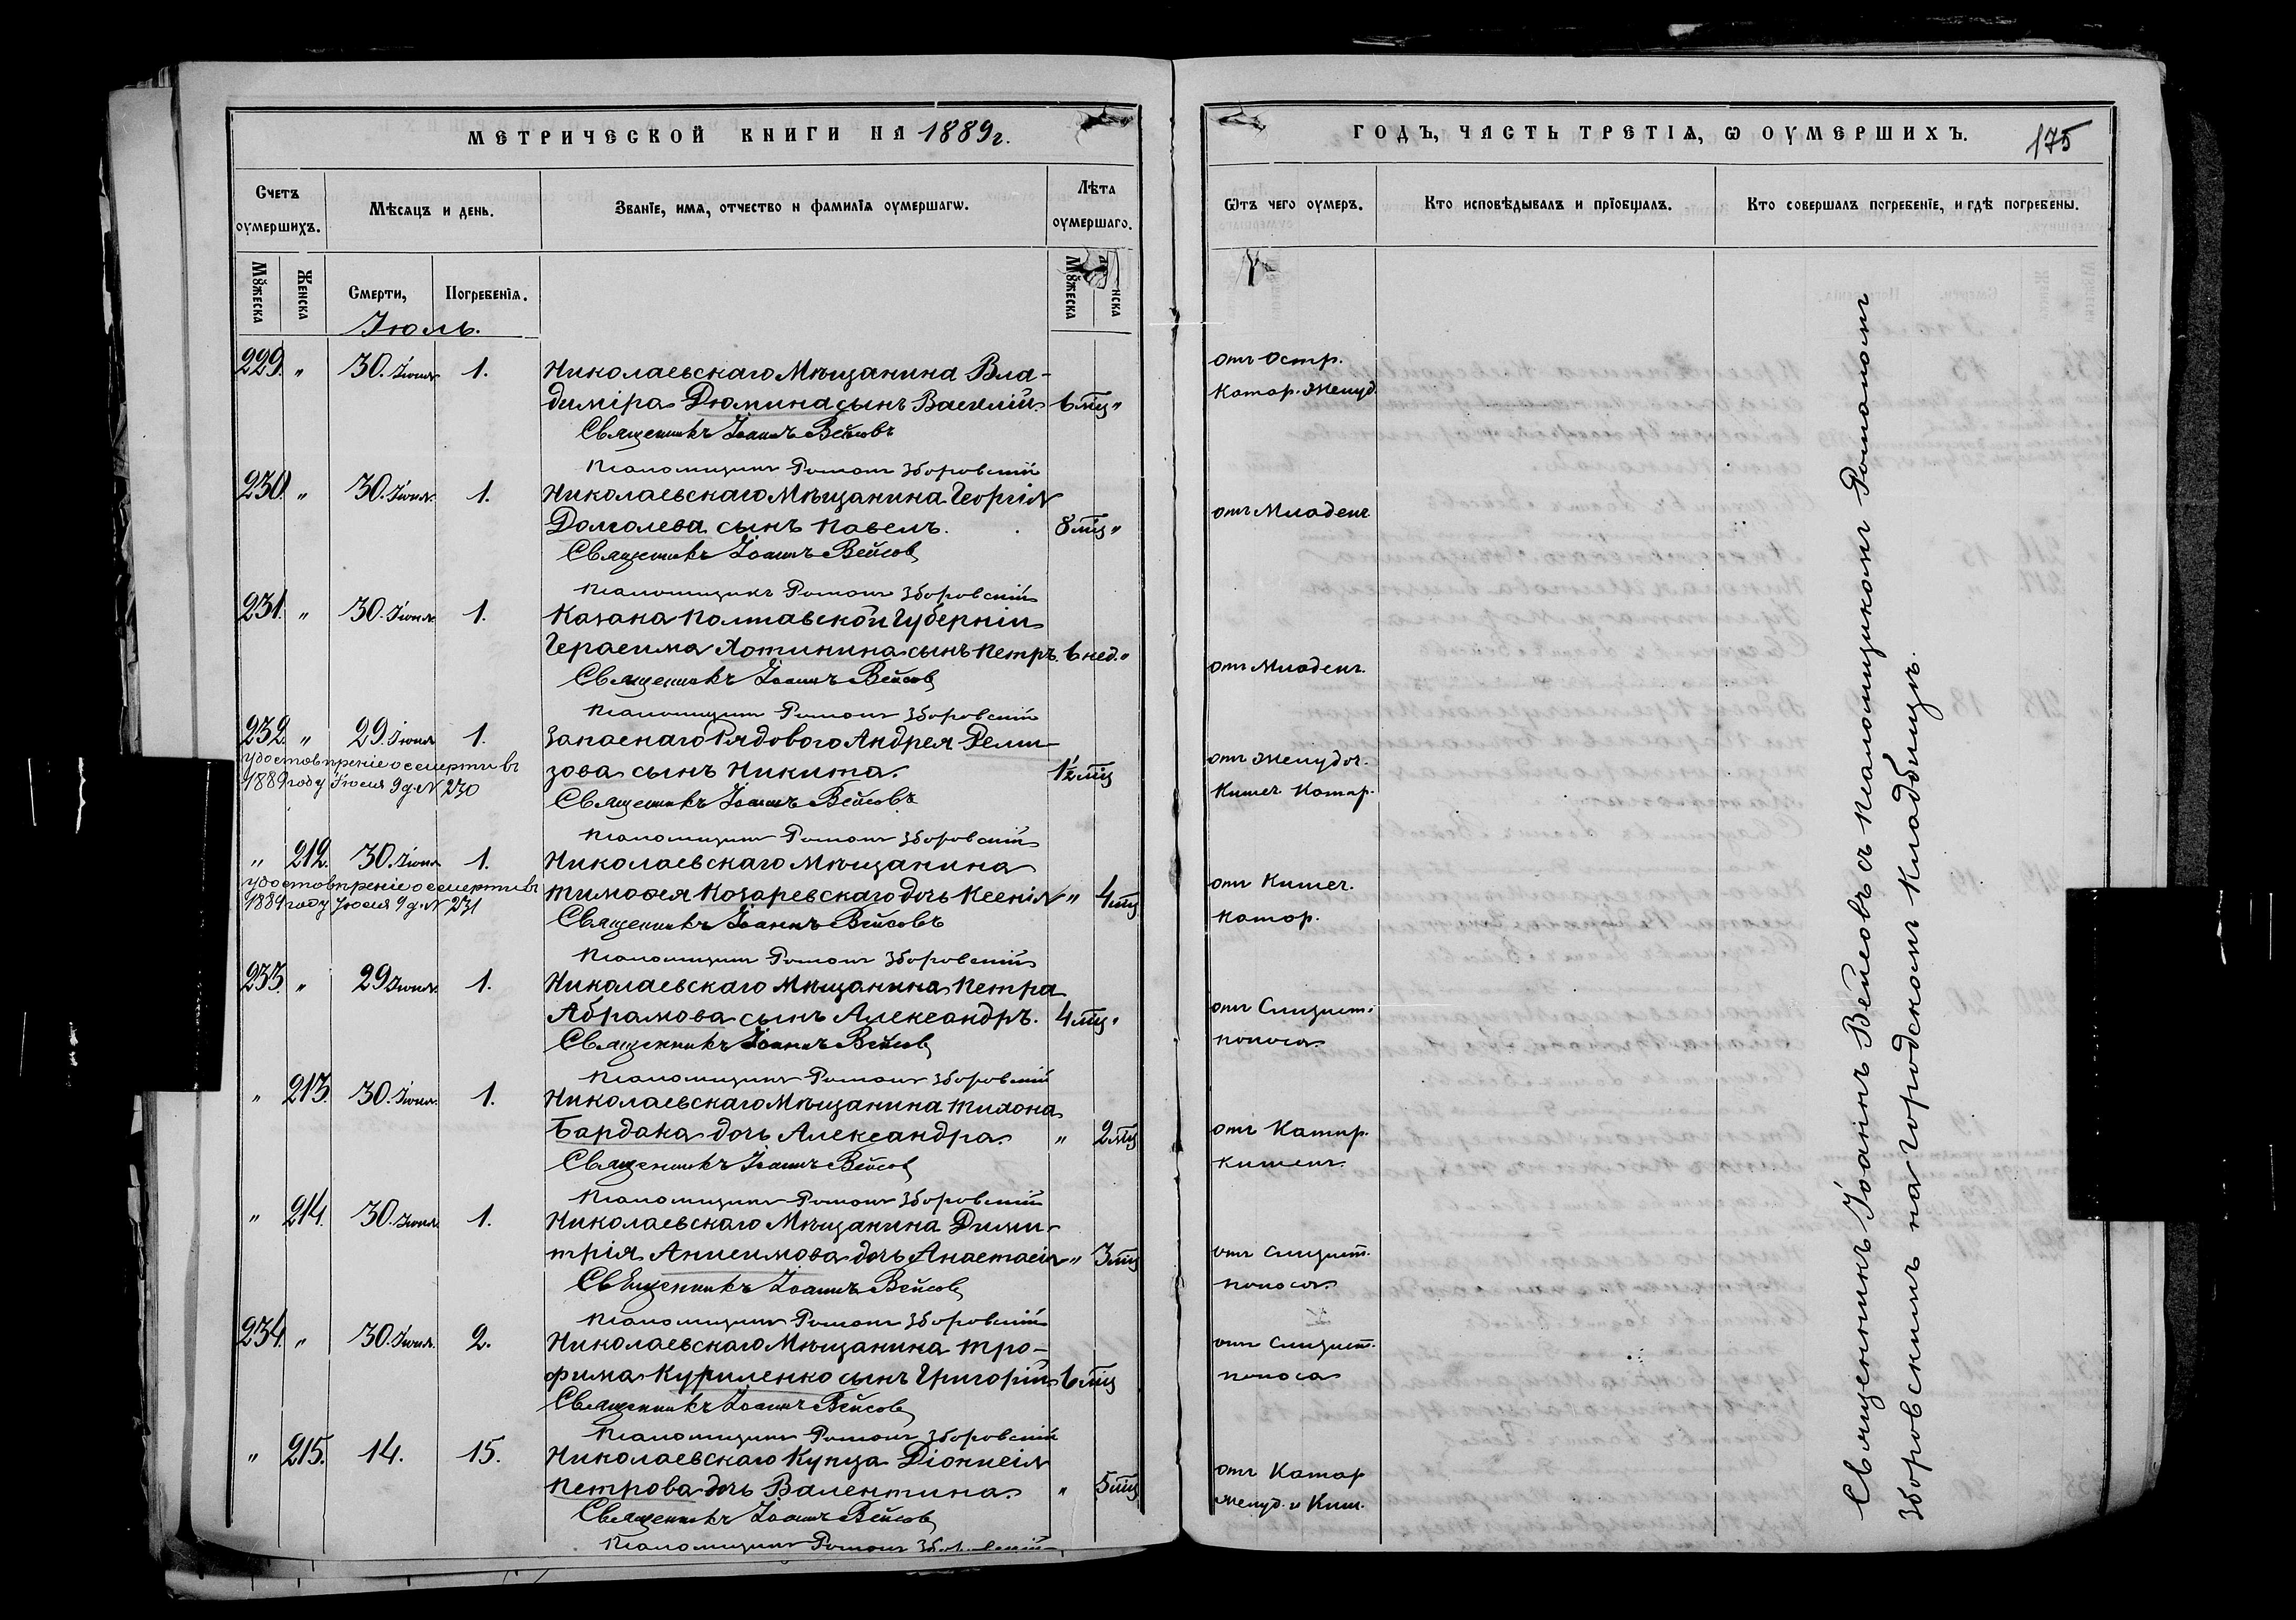 МЕТРИЧЕСКОЙ КНИГИ НА 1889 г.
Счетъ оумершихъ.
Мѣсяцъ и день.
Званіе, имя, отчество и фамилія оумершагѡ.
Лѣта оумершаго.
Мꙋжеска
Женска
Смерти,
Погребенія.
Мꙋжеска
нска
Іюль.
229. " 30. Іюня 1. Николаевскаго Мѣщанина Вла-
диміра Дюмина сынъ Василій. 6 мц "
Священникъ Іоаннъ Вейсовъ
Псаломщикъ Романъ Зборовскій
230 " 30. Іюня. 1. Николаевскаго Мѣщанина Георгія
Долголева сынъ Павелъ. 8 мц "
Священникъ Іоаннъ Вейсовъ
Псаломщикъ Романъ Зборовскій
231. " 30. Іюня 1. Казака Полтавской Губерніи
Герасима Хотинина сынъ Петръ. 6 нед. "
Священникъ Іоаннъ Вейсовъ
Псаломщикъ Романъ Зборовскій
232. " 29. Іюня 1. Запаснаго Рядового Андрея Реми-
зова сынъ Никита. 1½ мц
удостовѣреніе о смерти въ
1889 году Іюля 9 д. № 230
Священникъ Іоаннъ Вейсовъ
Псаломщикъ Романъ Зборовскій
" 212. 30. Іюня 1. Николаевскаго Мѣщанина
Тимофея Козаревскаго дочь Ксенія " 4 мц
удостовѣреніе о смерти въ
1889 году Іюля 9 д. № 231
Священникъ Іоаннъ Вейсовъ
Псаломщикъ Романъ Зборовскій
233. " 29 Іюня. 1. Николаевскаго Мѣщанина Петра
Абрамова сынъ Александръ. 4 мц "
Священникъ Іоаннъ Вейсовъ
Псаломщикъ Романъ Зборовскій
" 213. 30. Іюня. 1. Николаевскаго Мѣщанина Тихона
Бардака дочь Александра. " 2 мц
Священникъ Іоаннъ Вейсовъ
Псаломщикъ Романъ Зборовскій
" 214. 30. Іюня. 1. Николаевскаго Мѣщанина Дими-
трія Анисимова дочь Анастасія " 3 мц
Священникъ Іоаннъ Вейсовъ
Псаломщикъ Романъ Зборовскій
234. " 30. Іюня. 2. Николаевскаго Мѣщанина Тро-
фима Куриленко сынъ Григорій 6 мц
Священникъ Іоаннъ Вейсовъ
Псаломщикъ Романъ Зборовскій
" 215. 14. 15. Николаевскаго Купца Діонисія
Петрова дочь Валентина. " 5 мц
Священникъ Іоаннъ Вейсовъ
Псаломщикъ Романъ Зборовскій
ГОДЪ, ЧАСТЬ ТРЕТІЯ, Ѡ ОУМЕРШИХЪ.
175
Ѿтъ чего оумеръ.
Кто исповѣдывалъ и пріобщалъ.
Кто совершалъ погребеніе, и гдѣ погребены.
отъ Остр.
Катар. Желуд.
отъ Младенч
отъ Младенч.
отъ Желудоч.
Кишеч Катар.
отъ Кишеч.
Катар.
отъ Слизист.
поноса.
отъ Катар.
Кишечн.
отъ Слизист.
поноса.
отъ Слизист.
поноса
отъ Катар
Желуд. и Киш.
Священникъ Іоаннъ Вейсовъ съ псаломщикомъ Романомъ
Зборовскимъ на Городскомъ Кладбищѣ.